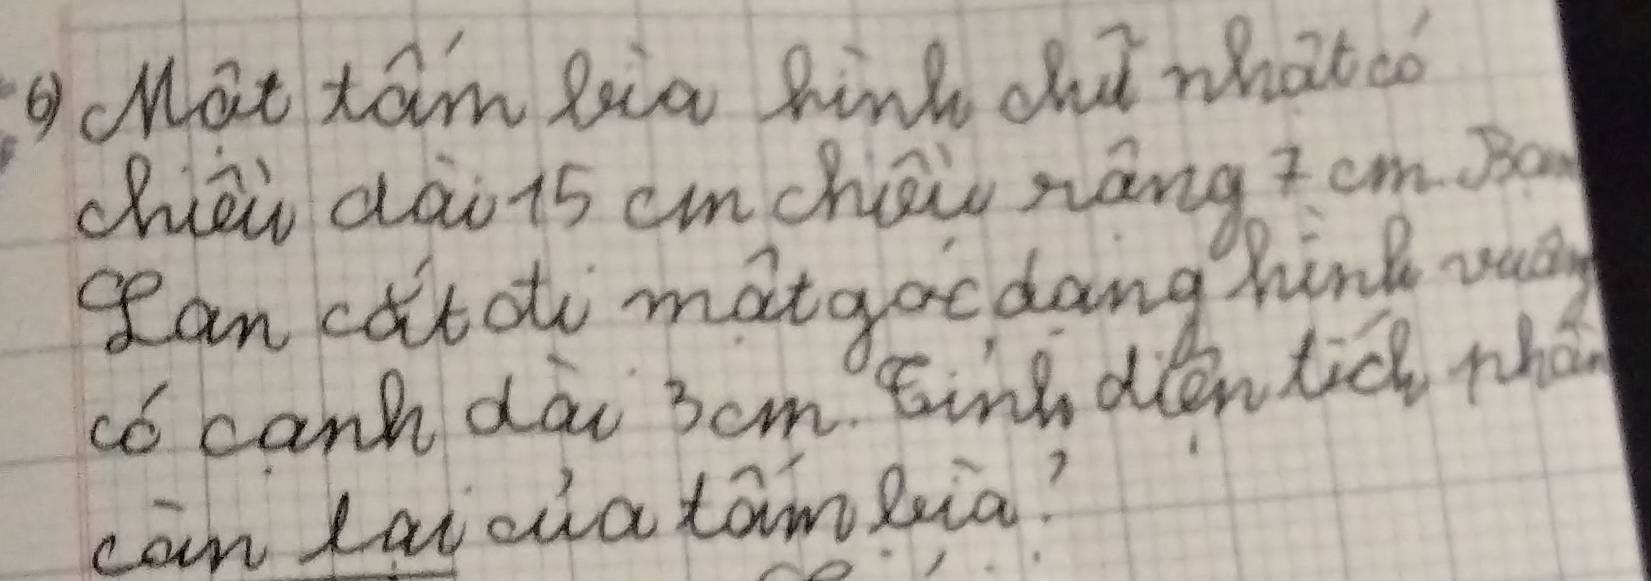 6) Một tấm bìa hình chữ nhật có
chiều dài 15 cm chiều rộng 7 cm. Bạn
Lan cắt đi một góc dạng hình vuông
có cạnh dài 3cm. Tính diện tích phần
còn lại của tấm bìa?